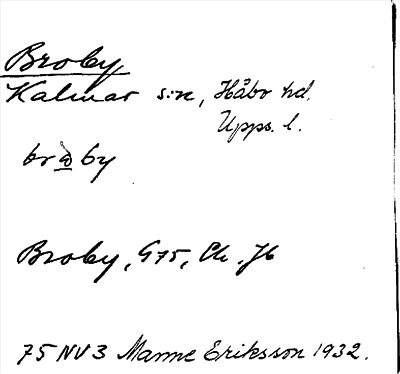 Broby
Kalmar sn, Håbo hd.
Upps. l.
bròby
Broby, G75, Ch. Jb
75 NV 3 Manne Eriksson 1932.